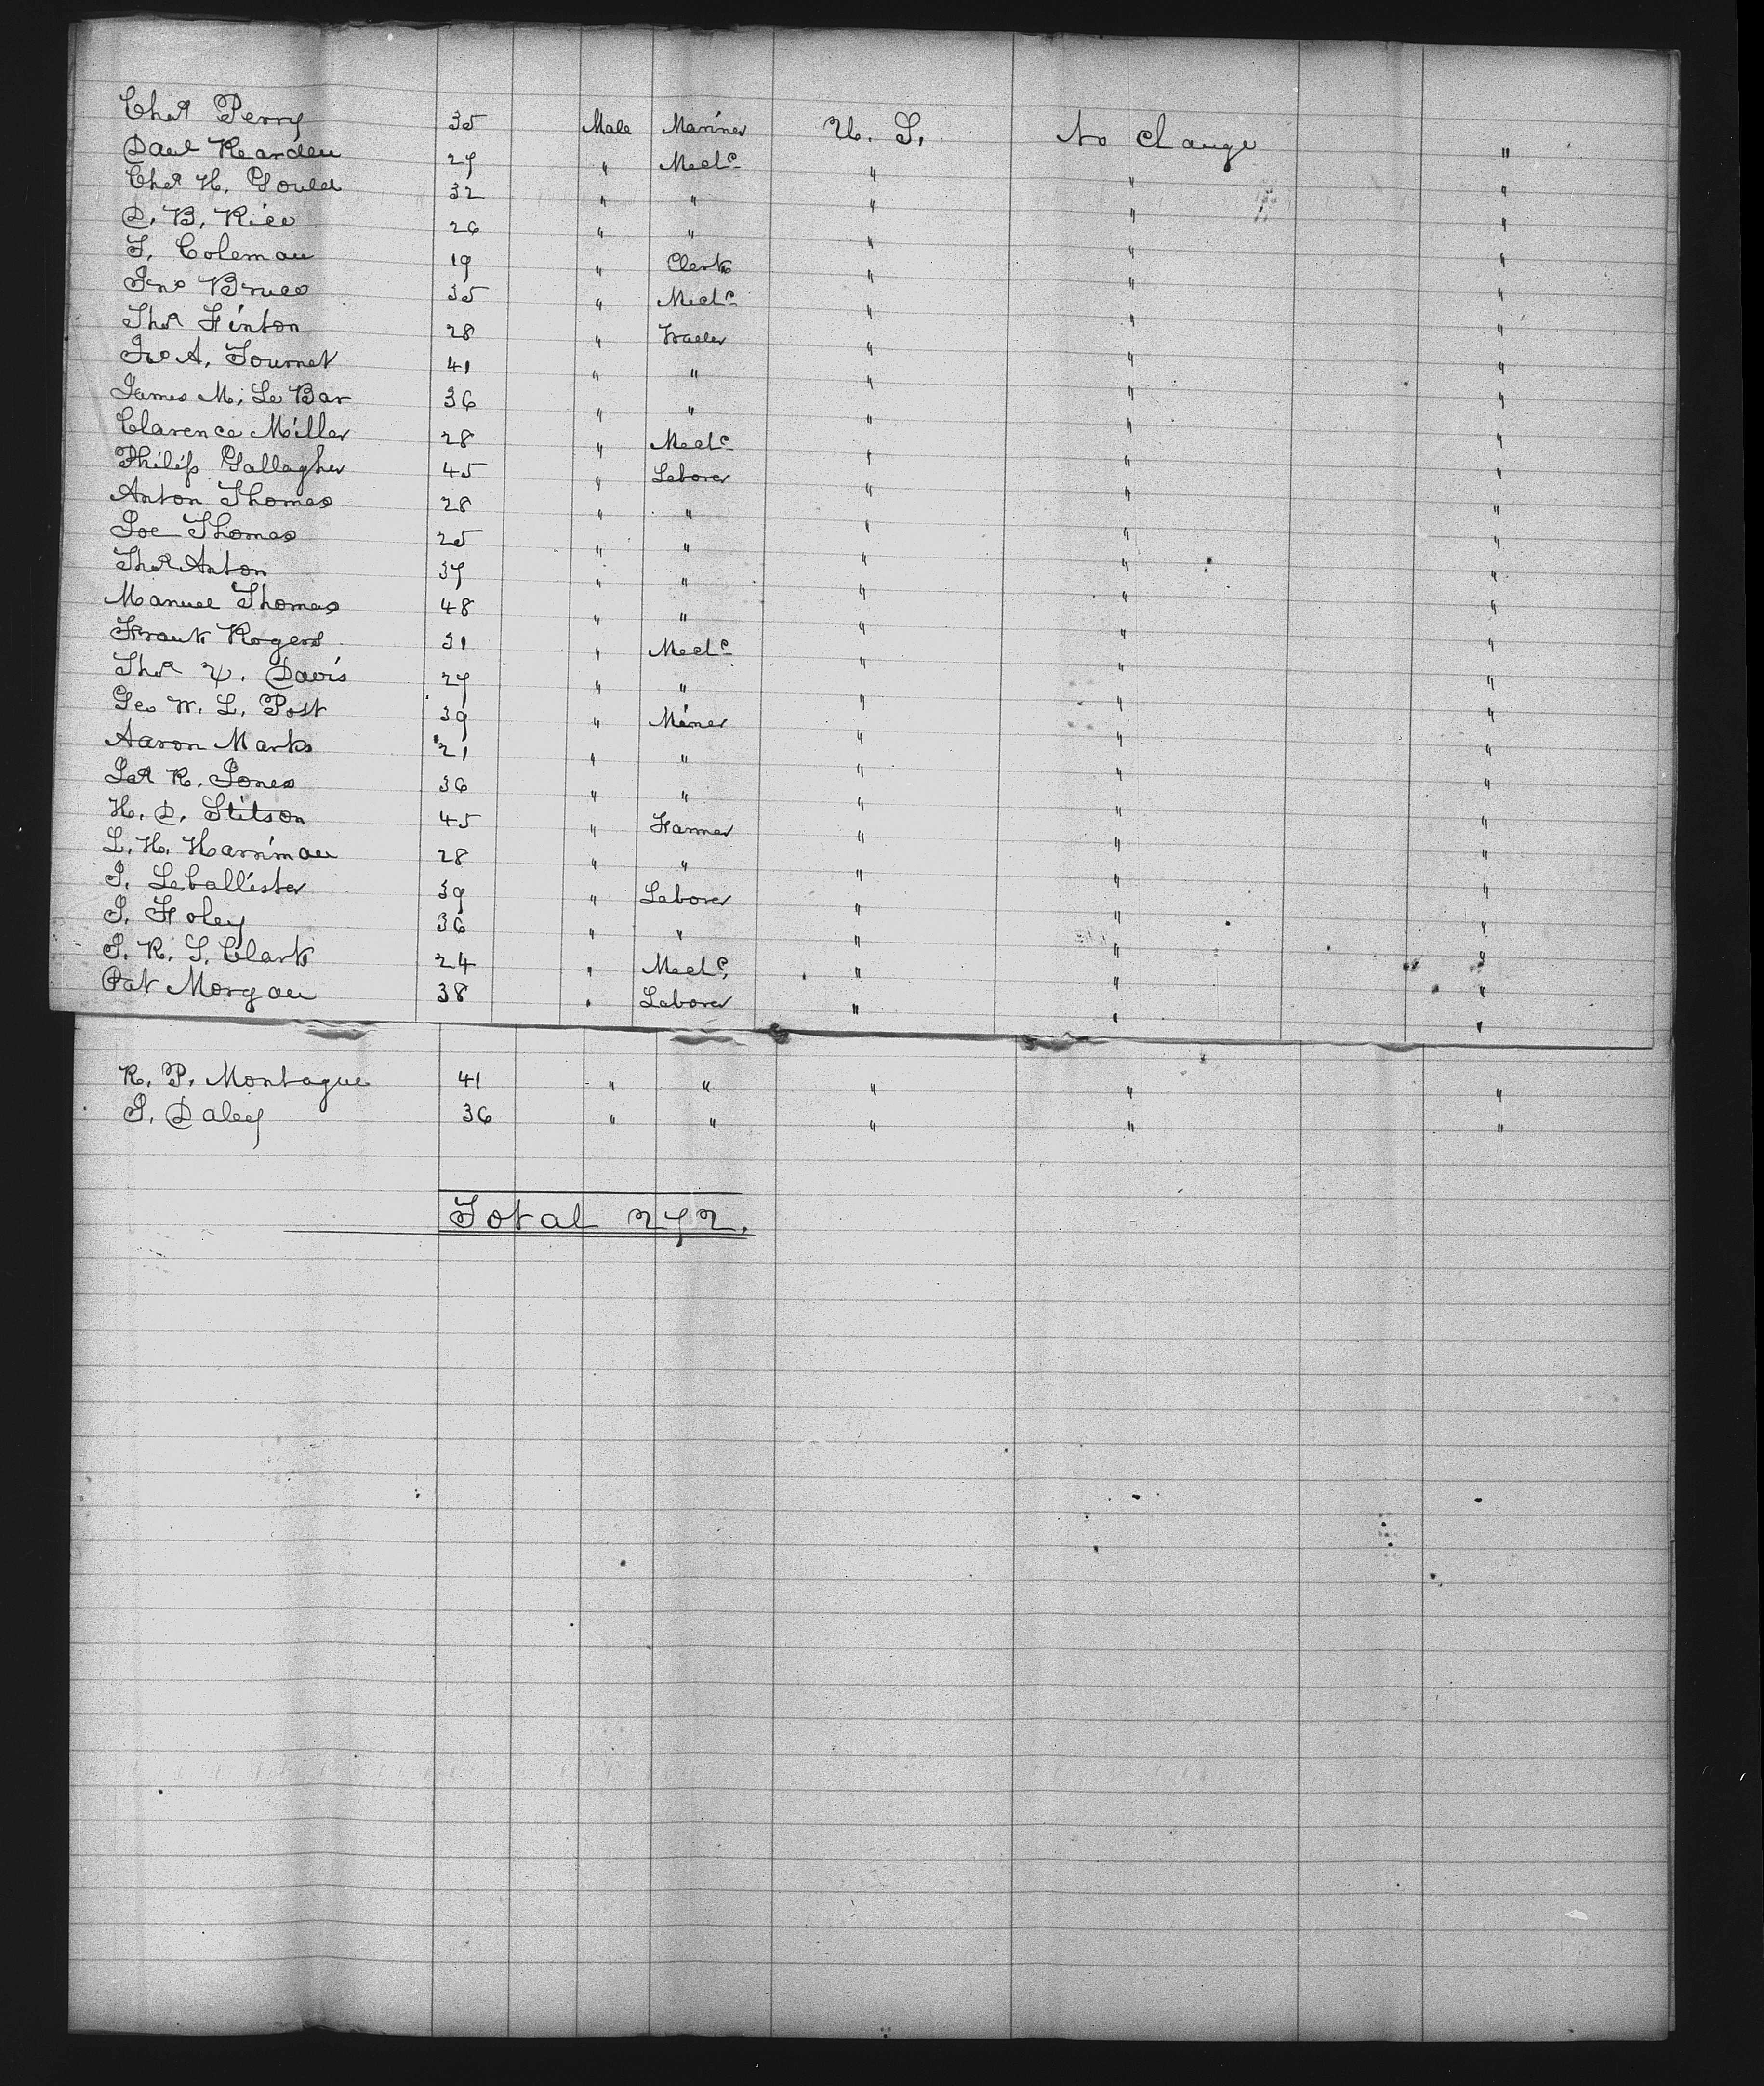 Chas Perry 35 Male Mariner U. S. No change "
Danl Rearden 27 " Mechc " " "
Chas H. Gould 32 " " " " "
D. B. Rice 26 " " " " "
T. Coleman 19 " Clerk " " "
Jno Bruce 35 " Mechc " " "
Thos Finton 28 " Trader " " "
Jos A. Fournet 41 " " " " "
James M. Le Bar 36 " " " " "
Clarence Miller 28 " Mechc " " "
Philip Gallagher 45 " Laborer " " "
Anton Thomas 28 " " " " "
Joe Thomas 25 " " " " "
Thos Anton 37 " " " " "
Manuel Thomas 48 " " " " "
Frank Rogers 31 " Mechc " " "
Thos W. Davis 27 " " " " "
Geo W. L. Post 39 " Miner " " "
Aaron Marks 21 " " " " "
Jas R. Jones 36 " " " " "
H. D. Stitson 45 " Farmer " " "
L. H. Harriman 28 " " " " "
J. Leballister 39 " Laborer " " "
J. Foley 36 " " " " "
J. R. S. Clark 24 " Mechc. " " "
Pat Morgan 38 " Laborer " " "
R. P. Montague 41 " " " " "
J. Daley 36 " " " " "
Total 272.